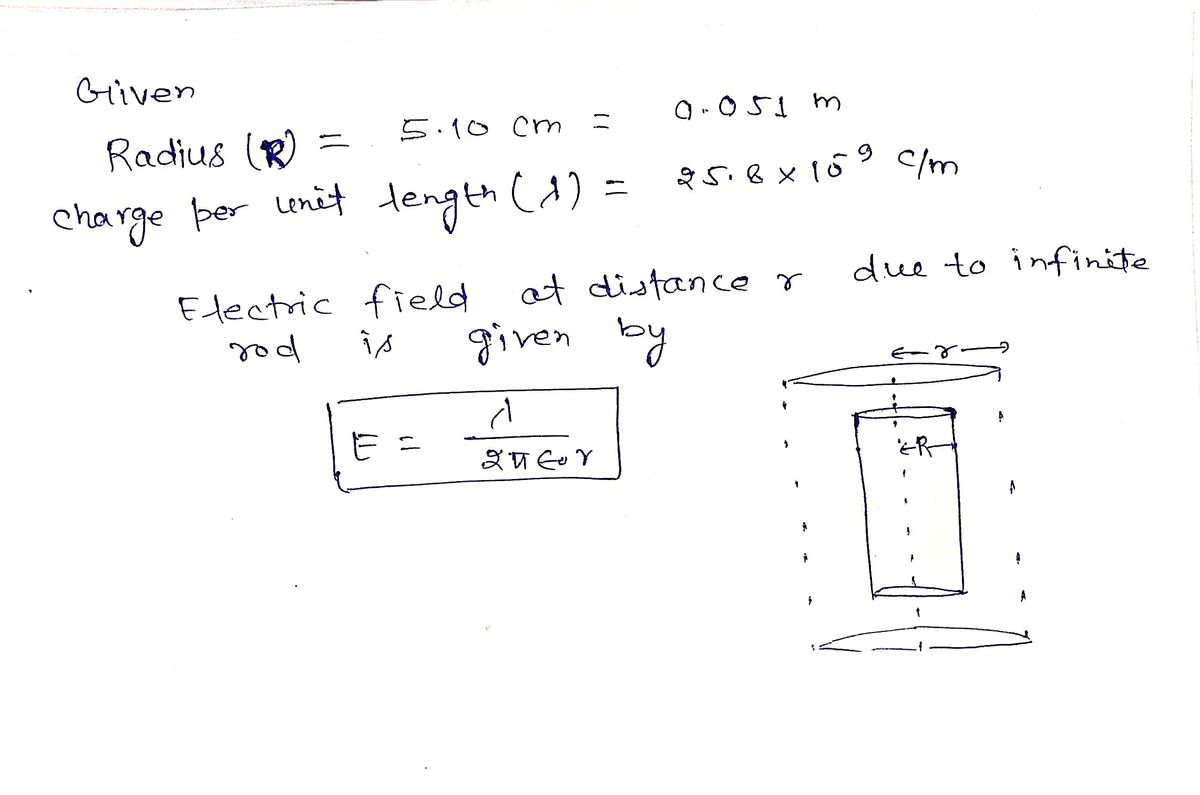 Given
Radius (R) = 5.10 cm = 0.051 m
charge per unit length (λ) = 25.8 × 10⁻⁹ C/m
Electric field at distance r due to infinite
rod is given by
E = λ / 2π ε₀ r
← r →
← R →